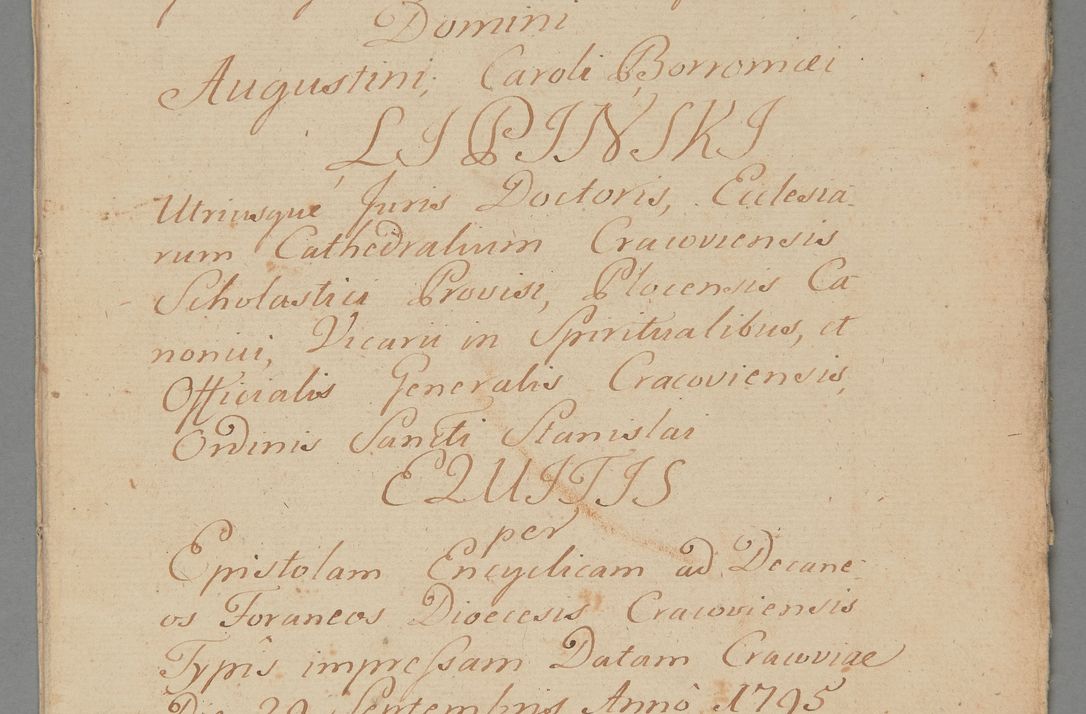 Domini
Augustini, Caroli Borromæi
LIPIŃSKI
Utriusque Juris Doctoris, Ecclesia-
rum Cathedralium Cracoviensis
Scholastici Provisi, Plocensis Ca
nonici, Vicarii in Spiritualibus, et
Officialis Generalis Cracoviensis,
Ordinis Sancti Stanislai
EQUITIS
per
Epistolam Encyclicam ad Decane-
os Foraneos Dioecesis Cracoviensis
Typis impreſsam Datam Cracoviae
Die 29 Septembris Annô 1795